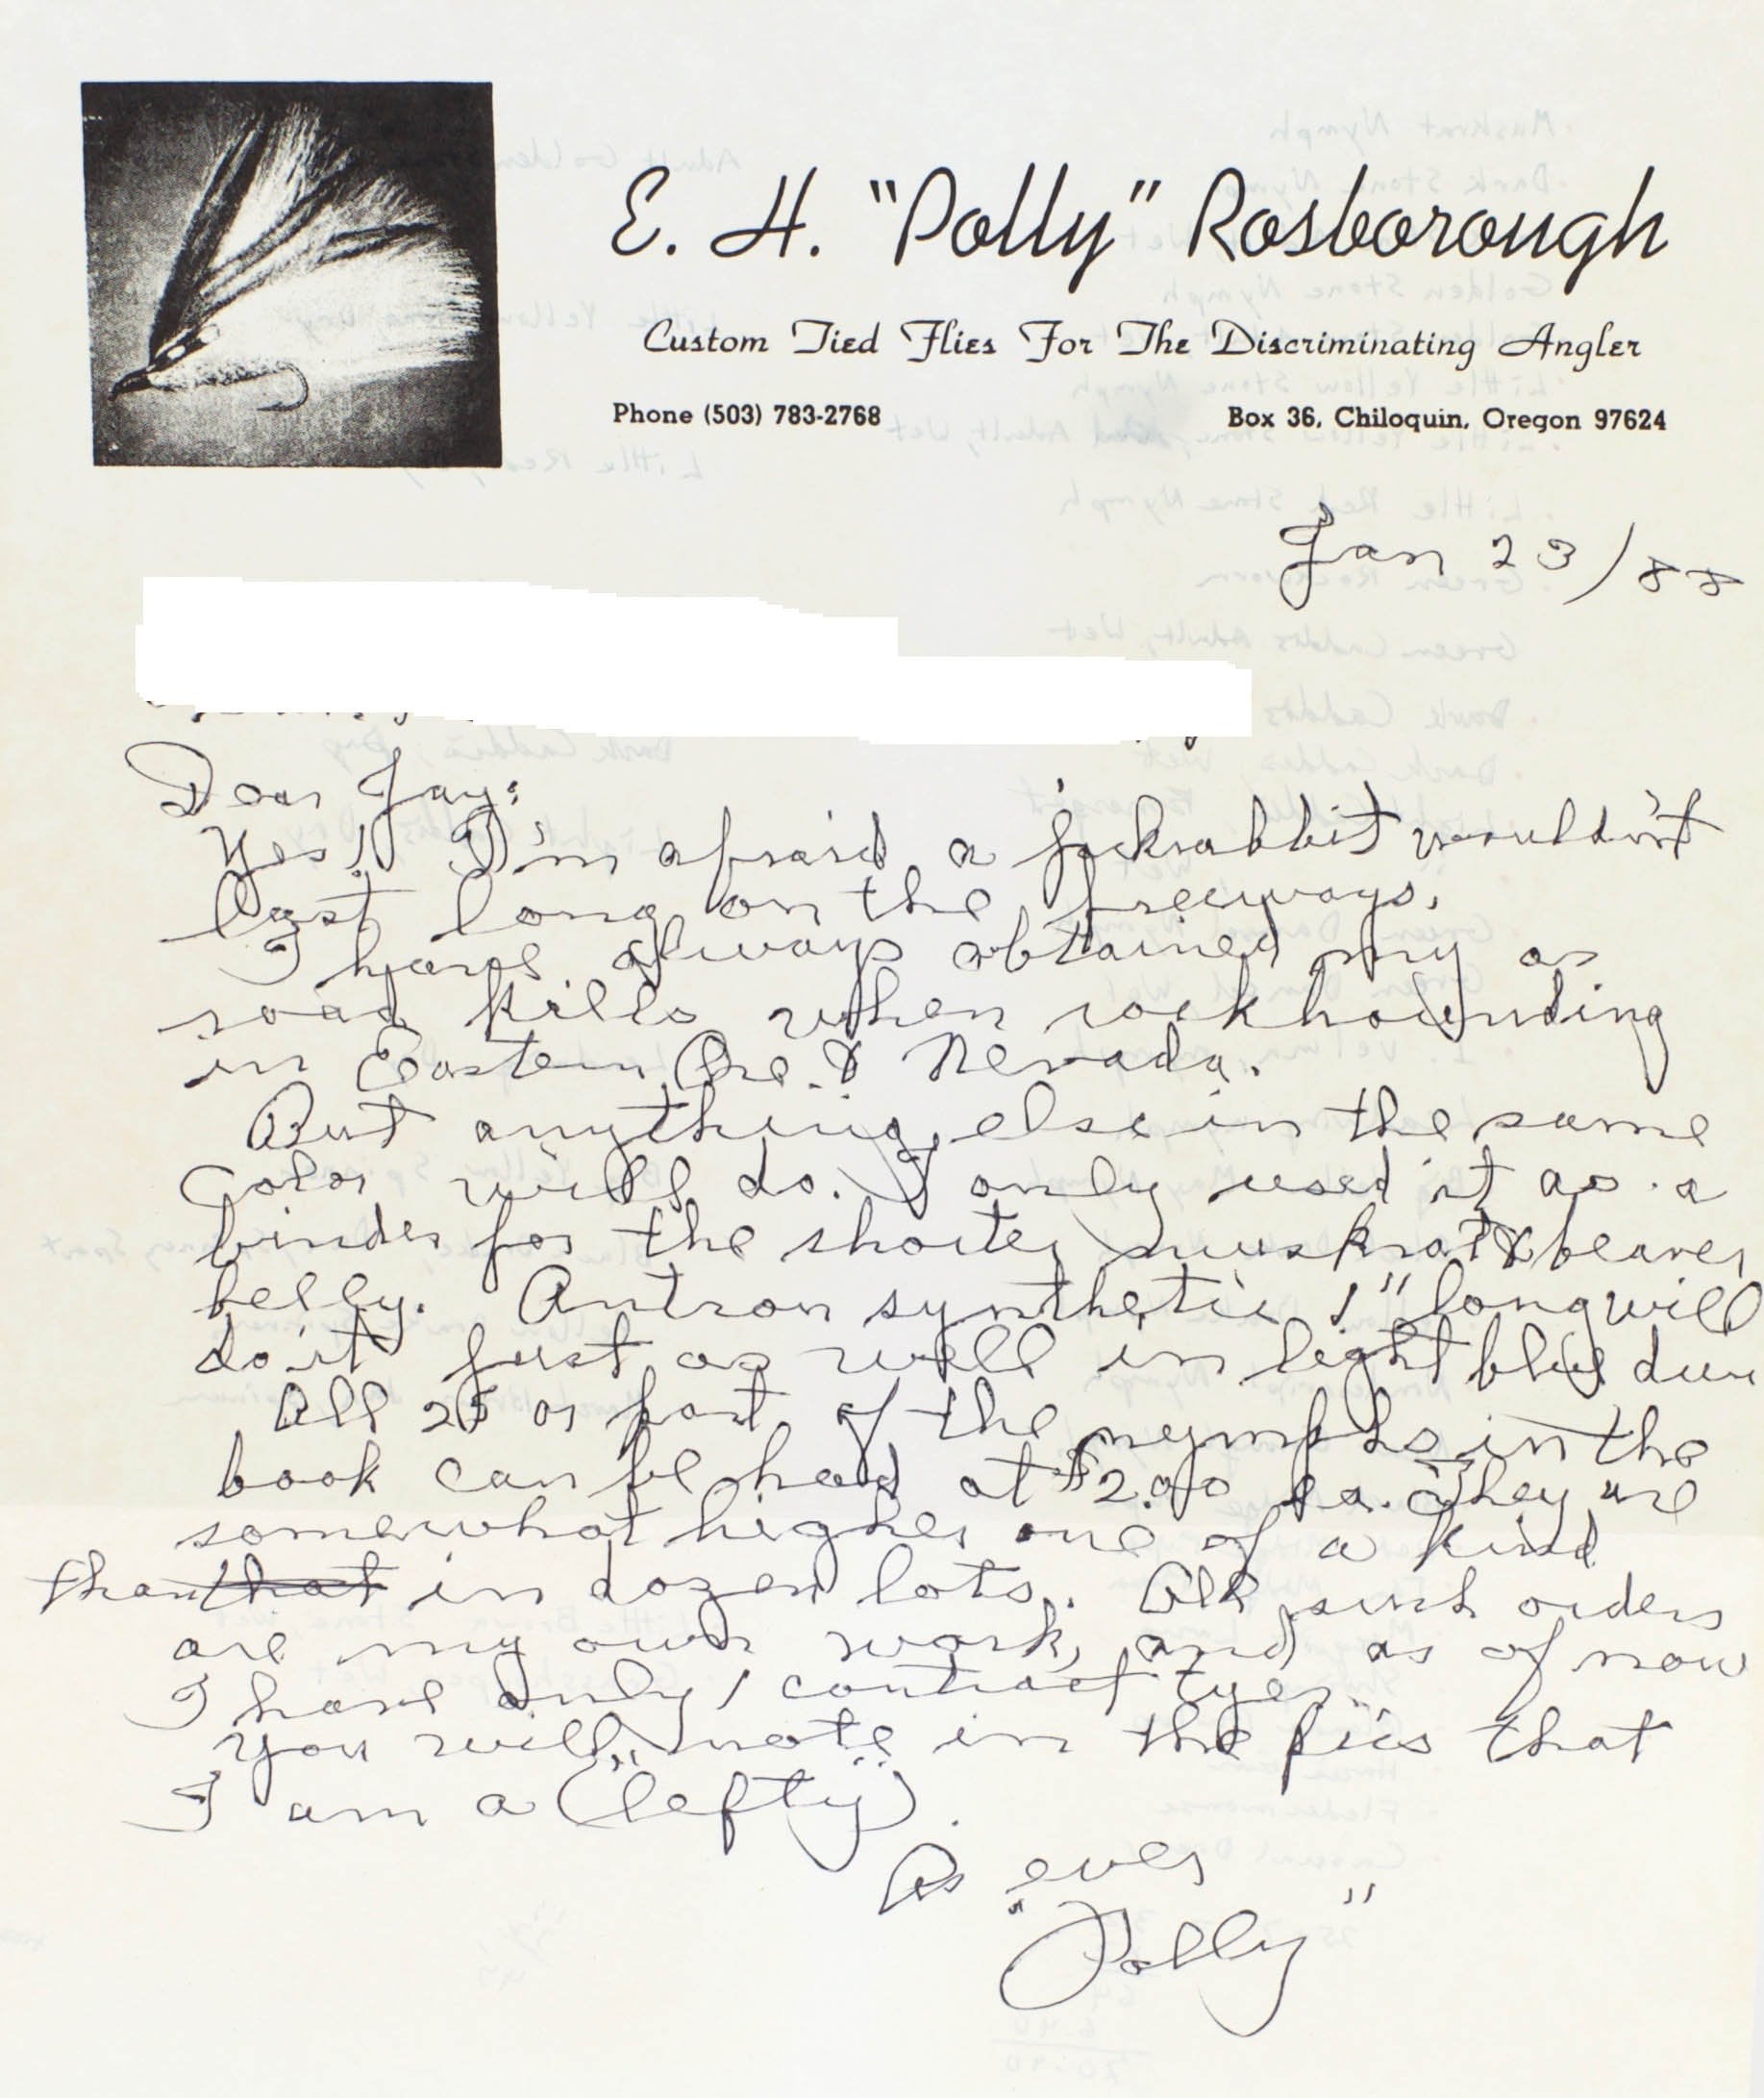 E. H. "Polly" Rosborough
Custom Tied Flies For The Discriminating Angler
Phone (503) 783-2768
Box 36, Chiloquin, Oregon 97624
Jan 23/88
Dear Jay:
Yes! I'm afraid a jackrabbit wouldn't
last long on the freeways.
I have always obtained my as
road kills when rockhounding
in Eastern Ore. & Nevada.
But anything else in the same
Color will do. I only used it as a
binder for the shorter muskrat & beaver
belly. Antron synthetic 1" long will
do it just as well in light blue dun
All 25 or part of the nymphs in the
book can be had at $2.00 ea. They are
somewhat higher one of a kind
than that in dozen lots. All such orders
are my own work, and as of now
I have only 1 contract tyer.
You will note in the pics that
I am a ("lefty").
As ever
"Polly"